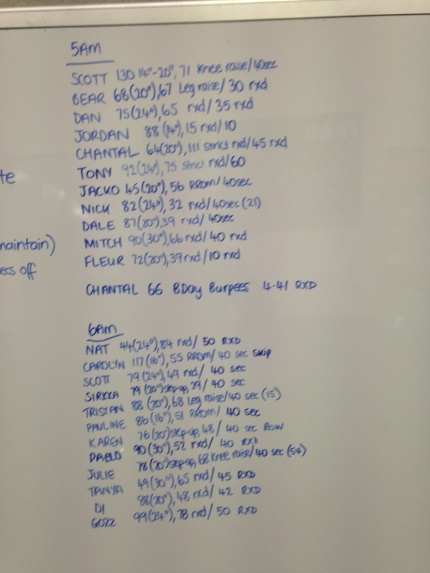 5AM
SCOTT 130 14"-20", 71 Knee raise/40sec
BEAR 68(20"), 67 Leg raise/ 30 rxd
DAN 75(24"), 65 rxd/ 35 rxd
JORDAN 88(14"), 15 rxd/10
CHANTAL 64(20"), 111 strict rxd/45 rxd
TONY 92(24"), 75 strict rxd/60
te
JACKO 45(20"), 56 RROM/40sec
NICK 82(24"), 32 rxd/40sec(21)
DALE 87(20"), 39 rxd/ 40sec
maintain)
MITCH 90(30"), 66 rxd/ 40 rxd
FLEUR 72(20"), 39 rxd/10 rxd
ecs off
CHANTAL 66 BDay Burpees 4-41 RXD
6AM
NAT 44(24"), 84 rxd/ 50 RXD
CAROLYN 117(16"), 55 RROM/ 40 sec skip
SCOTT 79(24"), 49 rxd/ 40 sec
SIRKKA 79(20")step-up, 29/ 40 sec
TRISTAN 88(20"), 68 Leg raise/40 sec(15)
PAULINE 80(16"), 51 RROM/ 40 sec
KAREN 76(20")step-up, 48/ 40 sec Row
PABLO 90(30"), 52 rxd/ 40 RXD
JULIE 78(20")step-up, 68 Knee raise/40 sec(54)
TANYA 49(30"), 65 rxd/ 45 RXD
DI 88(20"), 48 rxd/ 42 RXD
GOZZ 99(24"), 78 rxd/ 50 RXD